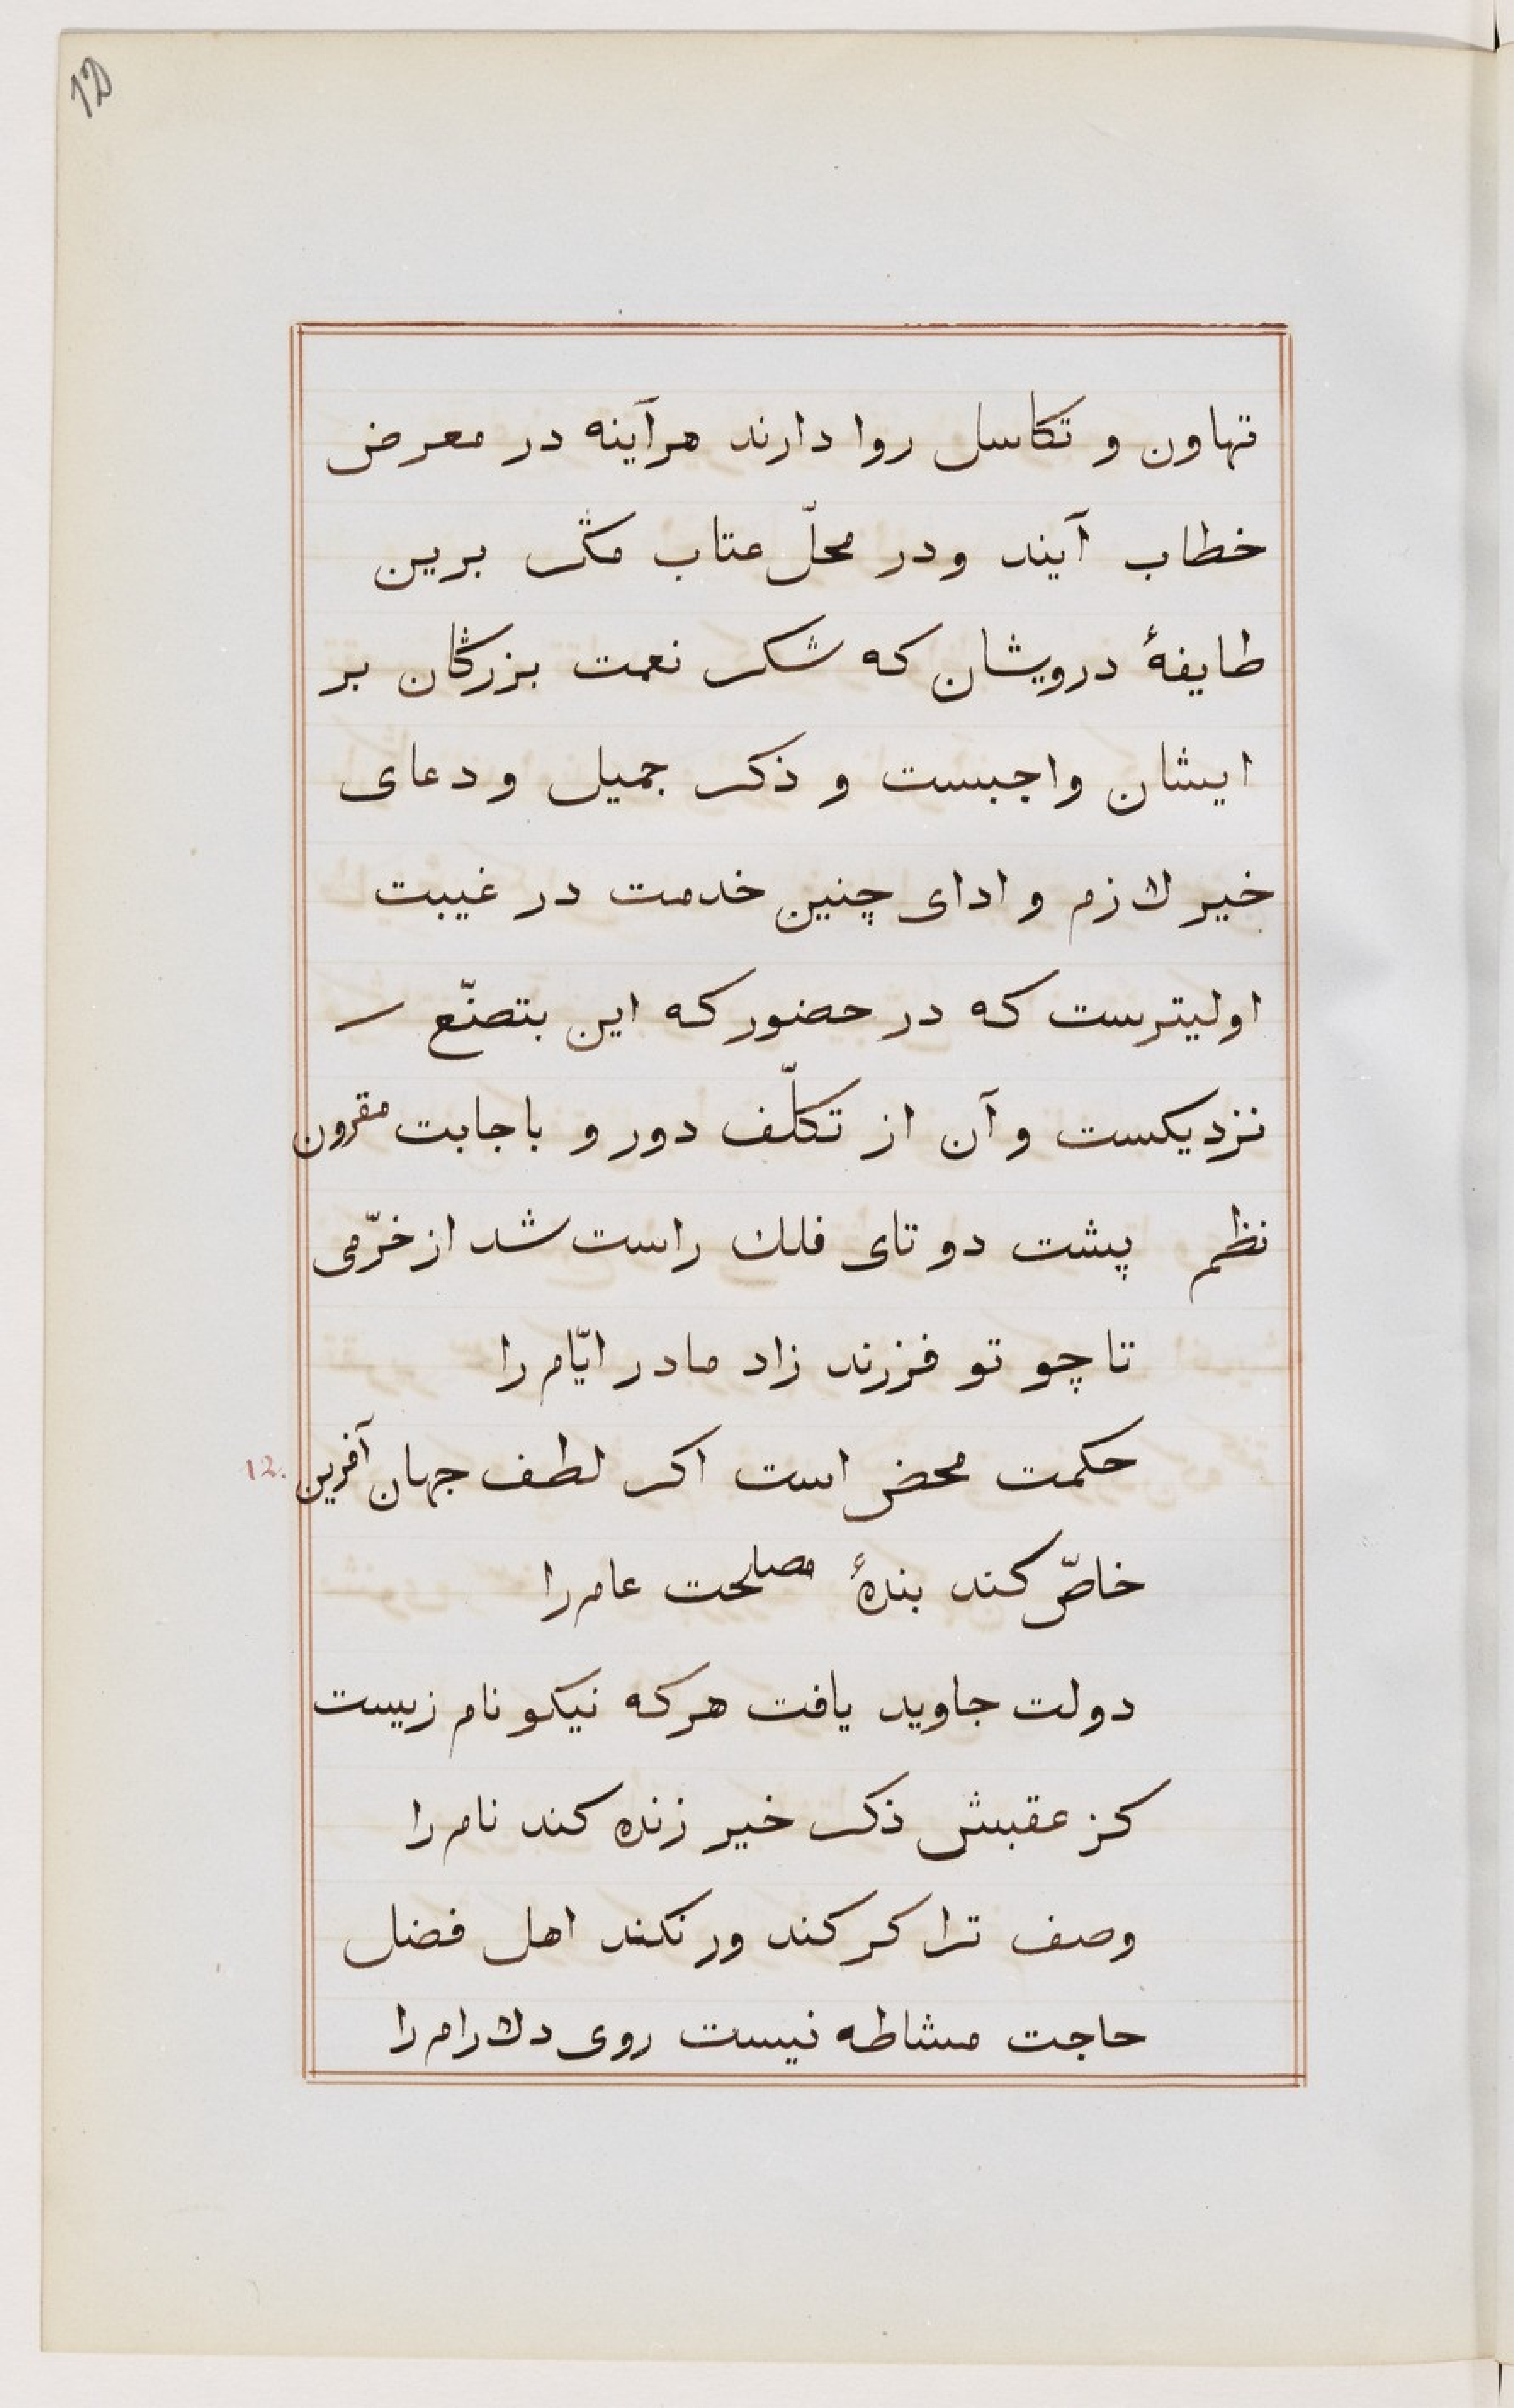 12
تهاون و تكاسل روا دارند هرآينه در معرض
خطاب آيند ودر محلّ عتاب مگر برين
طايفهٔ درويشان كه شكر نعمت بزرگان بر
ايشان واجبست و ذكر جميل و دعاى
خير لازم و اداى چنين خدمت در غيبت
اوليترست كه در حضور كه اين بتصنّع
نزديكست و آن از تكلّف دور و باجابت مقرون
نظم پشت دو تاى فلك راست شد از خرّمى
تا چو تو فرزند زاد مادر ايّام را
حكمت محض است اكر لطف جهان آفرين
12.
خاصّ كند بندهٔ مصلحت عام را
دولت جاويد يافت هركه نيكو نام زيست
كز عقبش ذكر خير زنده كند نام را
وصف ترا كر كند ور نكند اهل فضل
حاجت مشاطه نيست روى دلارام را